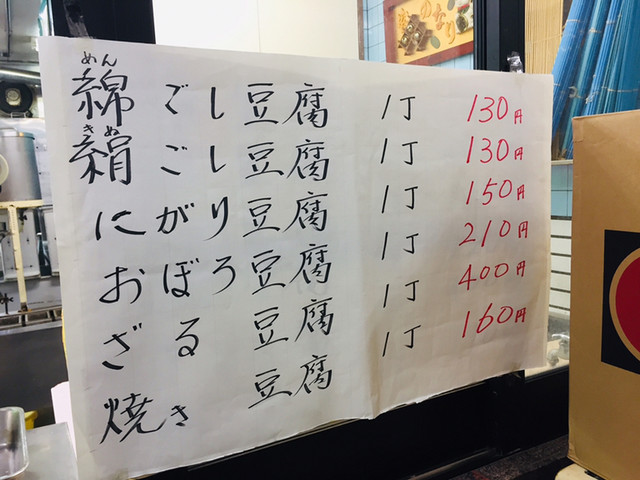 綿ごし豆腐 1丁 130円
絹ごし豆腐 1丁 130円
にがり豆腐 1丁 150円
おぼろ豆腐 1丁 210円
ざる豆腐 1丁 400円
焼き豆腐 1丁 160円
めん
きぬ